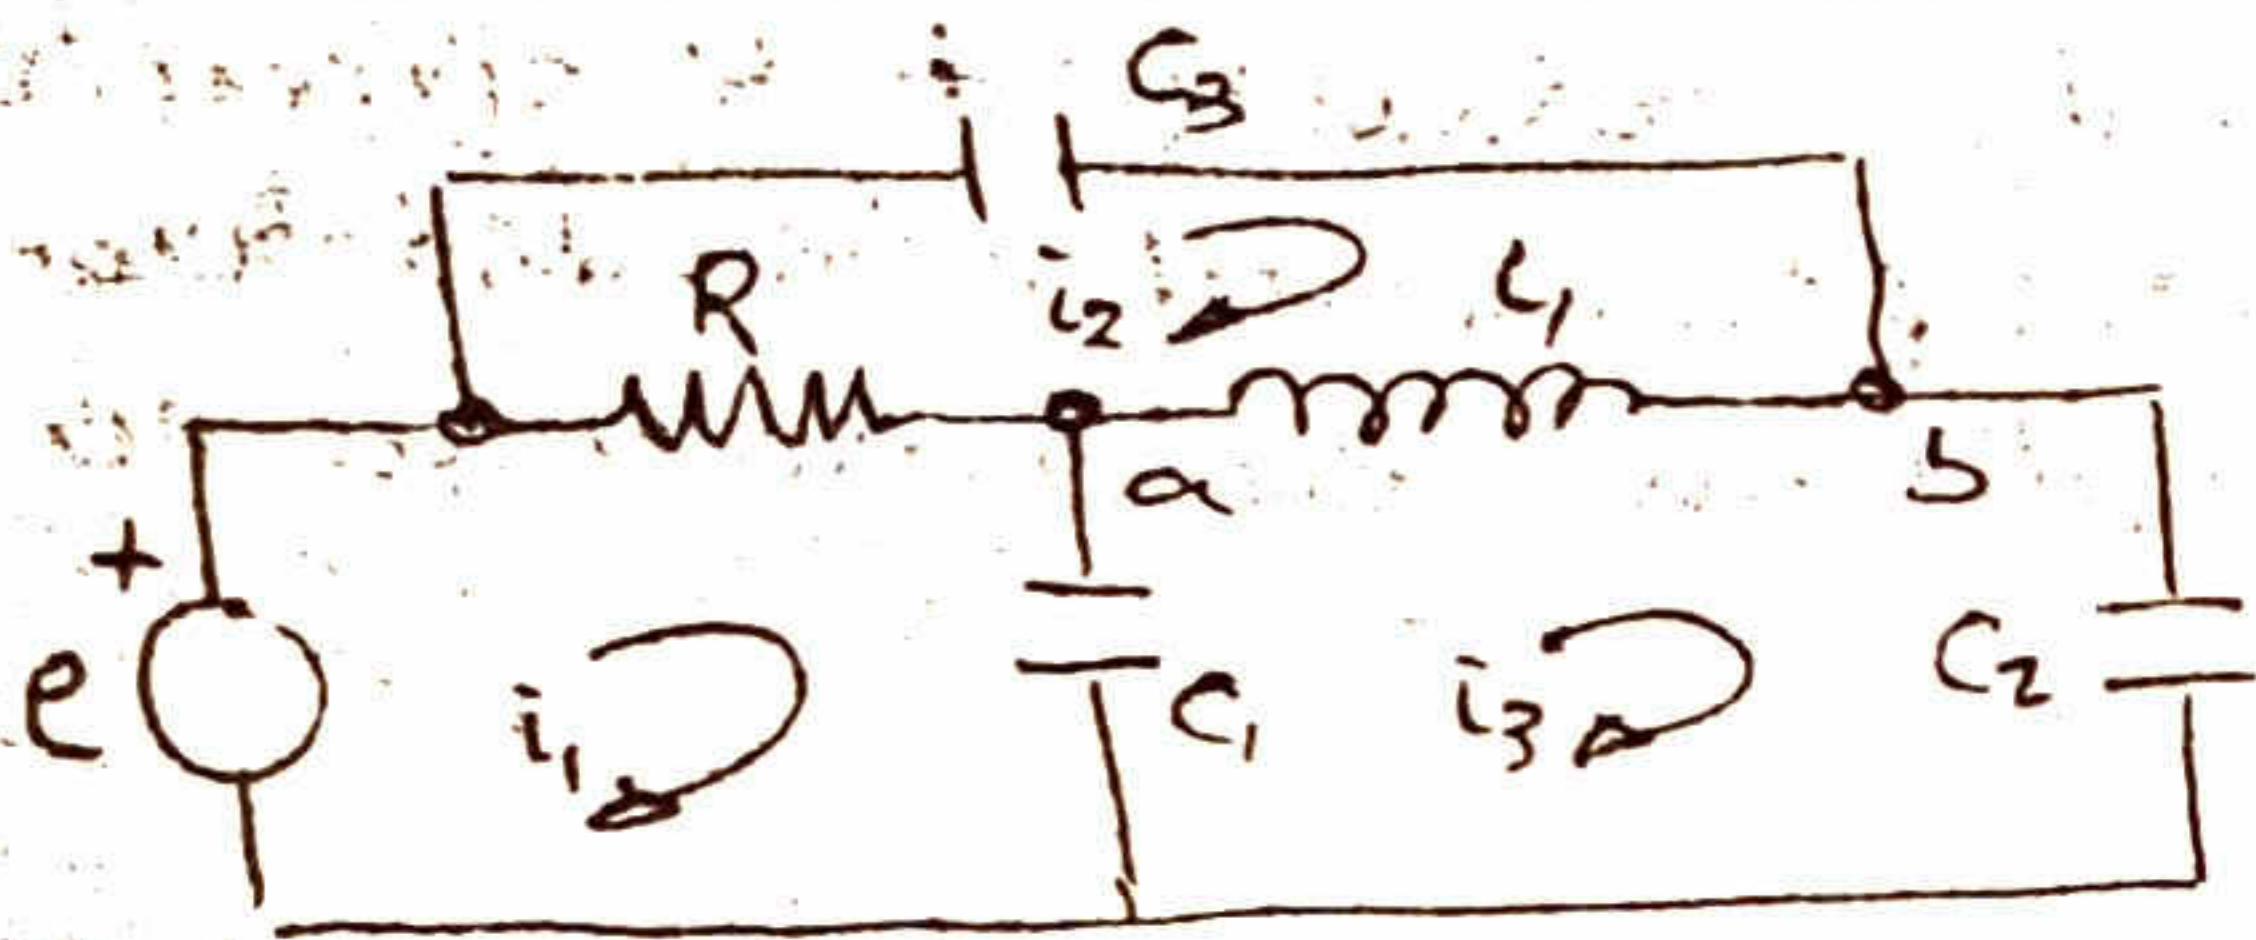 C3
R
i2
L1
a
b
+
e
i1
C1
i3
C2